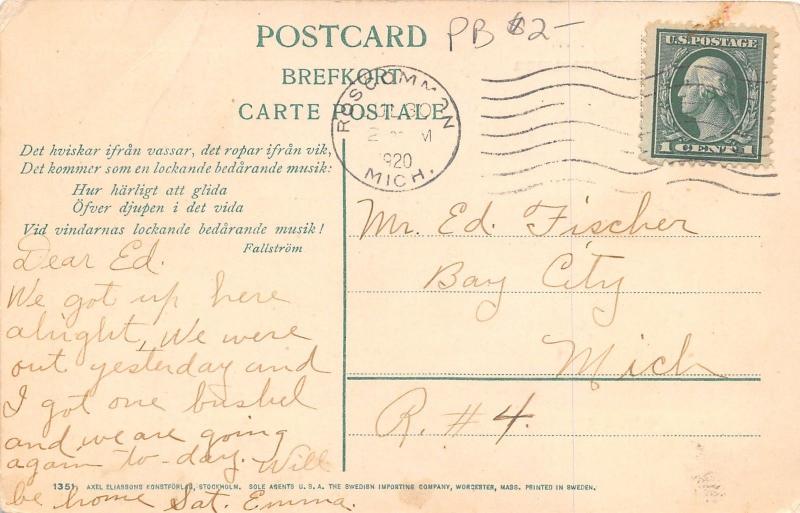 POSTCARD
PB $2-
BREFKORT
CARTE POSTALE
ROSCOMMON
30
1920
MICH.
U.S. POSTAGE
1 CENT 1
Det hviskar ifrån vassar, det ropar ifrån vik,
Det kommer som en lockande bedårande musik:
Hur härligt att glida
Öfver djupen i det vida
Vid vindarnas lockande bedårande musik!
Fallström
Dear Ed.
We got up here
alright, We were
out yesterday and
I got one bushel
and we are going
again to-day. Will
be home Sat. Emma.
Mr. Ed. Fischer
Bay City
Mich
R. #4.
1351 AXEL ELIASSONS KONSTFÖRLAG, STOCKHOLM. SOLE AGENTS U.S.A. THE SWEDISH IMPORTING COMPANY, WORCESTER, MASS. PRINTED IN SWEDEN.